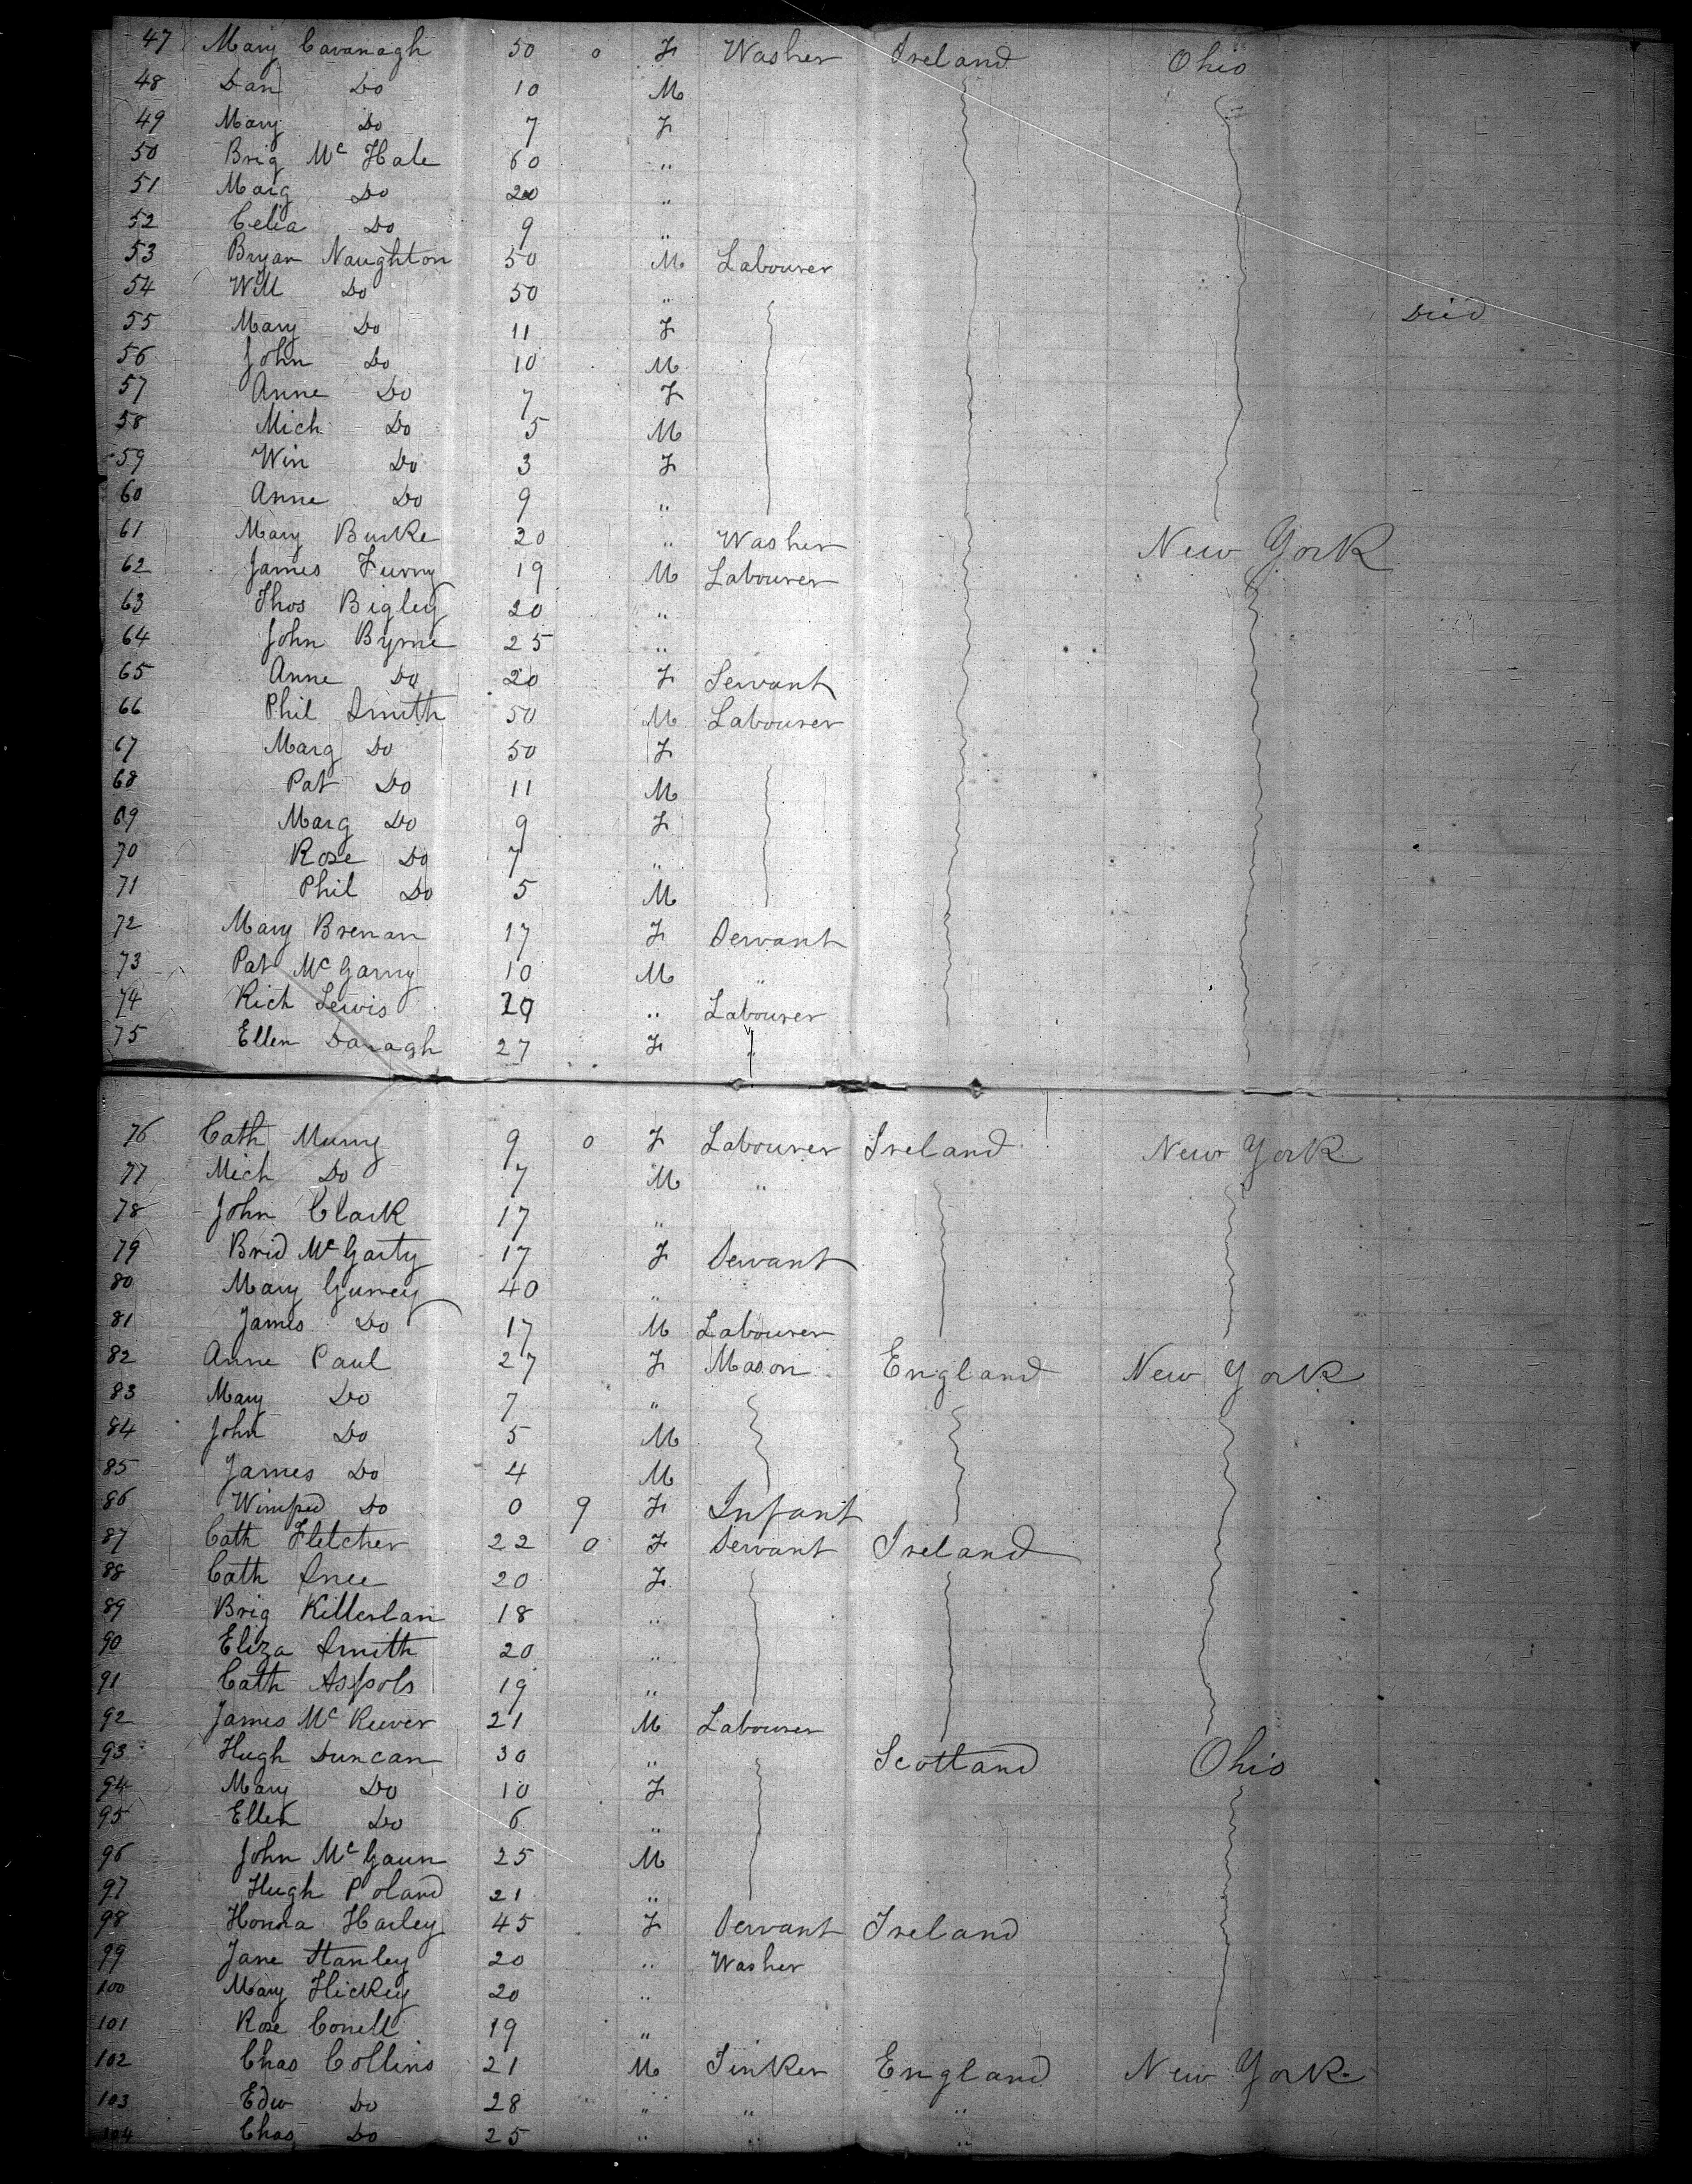 47 Mary Cavanagh 50 0 F Washer Ireland Ohio
48 Dan Do 10 M
49 Mary Do 7 F
50 Brig Mc Hale 60 "
51 Marg Do 20 "
52 Celia Do 9 "
53 Bryan Naughton 50 M Labourer
54 Will Do 50 " Died
55 Mary Do 11 F
56 John Do 10 M
57 Anne Do 7 F
58 Mich Do 5 M
59 Win Do 3 F
60 Anne Do 9 "
61 Mary Burke 20 " Washer New York
62 James 19 M Labourer
63 Thos Bigley 20 "
64 John Byrne 25 "
65 Anne Do 20 F Servant
66 Phil Smith 50 M Labourer
67 Marg Do 50 F
68 Pat Do 11 M
69 Marg Do 9 F
70 Rose Do 7 "
71 Phil Do 5 M
72 Mary Brenan 17 F Servant
73 Pat Mc Garry 10 M "
74 Rich Lewis " Labourer
75 Ellen Daragh 27 F "
76 Cath Murry 9 0 F Labourer Ireland New York
77 Mich Do 7 M "
78 John Clark 17 "
79 Brid Mc Garty 17 F Servant
80 Mary 40 "
81 James Do 17 M Labourer
82 Anne Paul 27 F Mason England New York
83 Mary Do 7 "
84 John Do 5 M
85 James Do 4 M
86 Winifred Do 0 9 F Infant
87 Cath Fletcher 22 0 F Servant Ireland
88 Cath 20 F
89 Brig Killerlan 18 "
90 Eliza Smith 20 "
91 Cath 19 "
92 James Mc Keever 21 M Labourer
93 Hugh Duncan 30 " Scotland Ohio
94 Mary Do 10 F
95 Ellen Do 6 "
96 John Mc Gaun 25 M
97 Hugh Poland 21 "
98 Honora Harley 45 F Servant Ireland
99 Jane Stanley 20 " Washer
100 Mary Hickey 20 "
101 Rose Conell 19 "
102 Chas Collins 21 M Tinker England New York
103 Edw Do 28 " " "
104 Chas Do 25 " " "